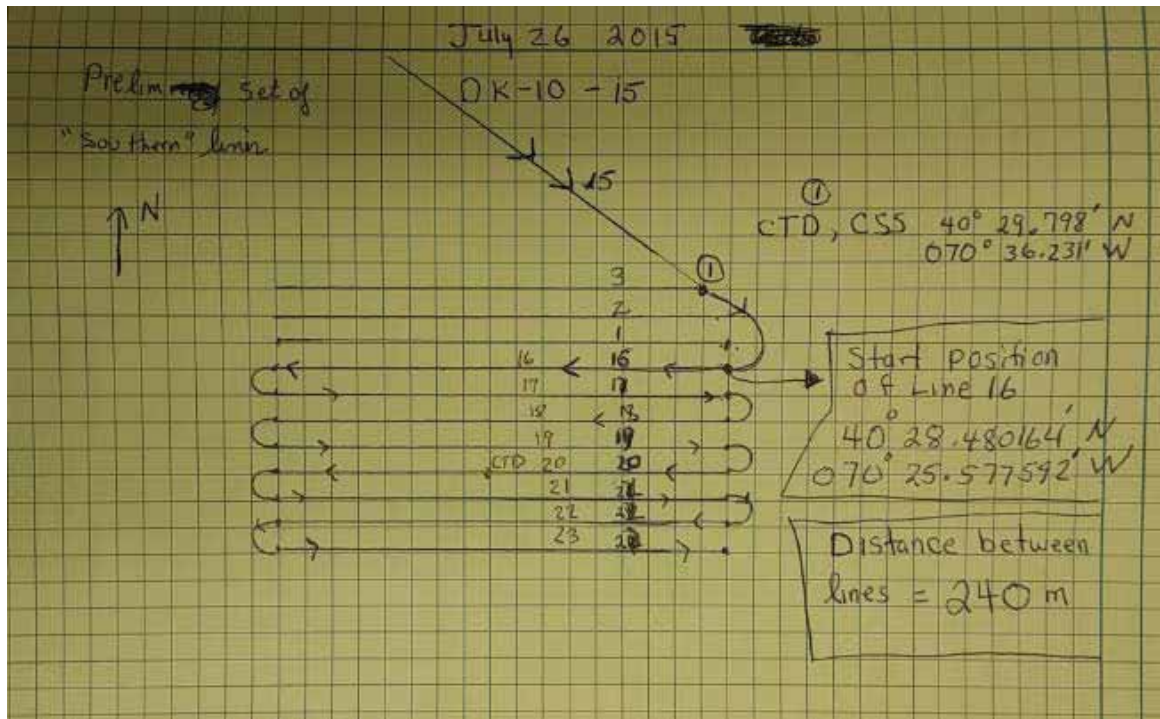 July 26 2015
Prelim set of
"Southern" lines
DK-10-15
N
15
①
CTD, CSS 40° 29.798' N
070° 36.231' W
3 ①
2
1
16 16
17 17
18 18
19 19
CTD 20 20
21
22
23
Start position
of Line 16
40° 28.480164' N
070° 25.577592' W
Distance between
lines = 240 m